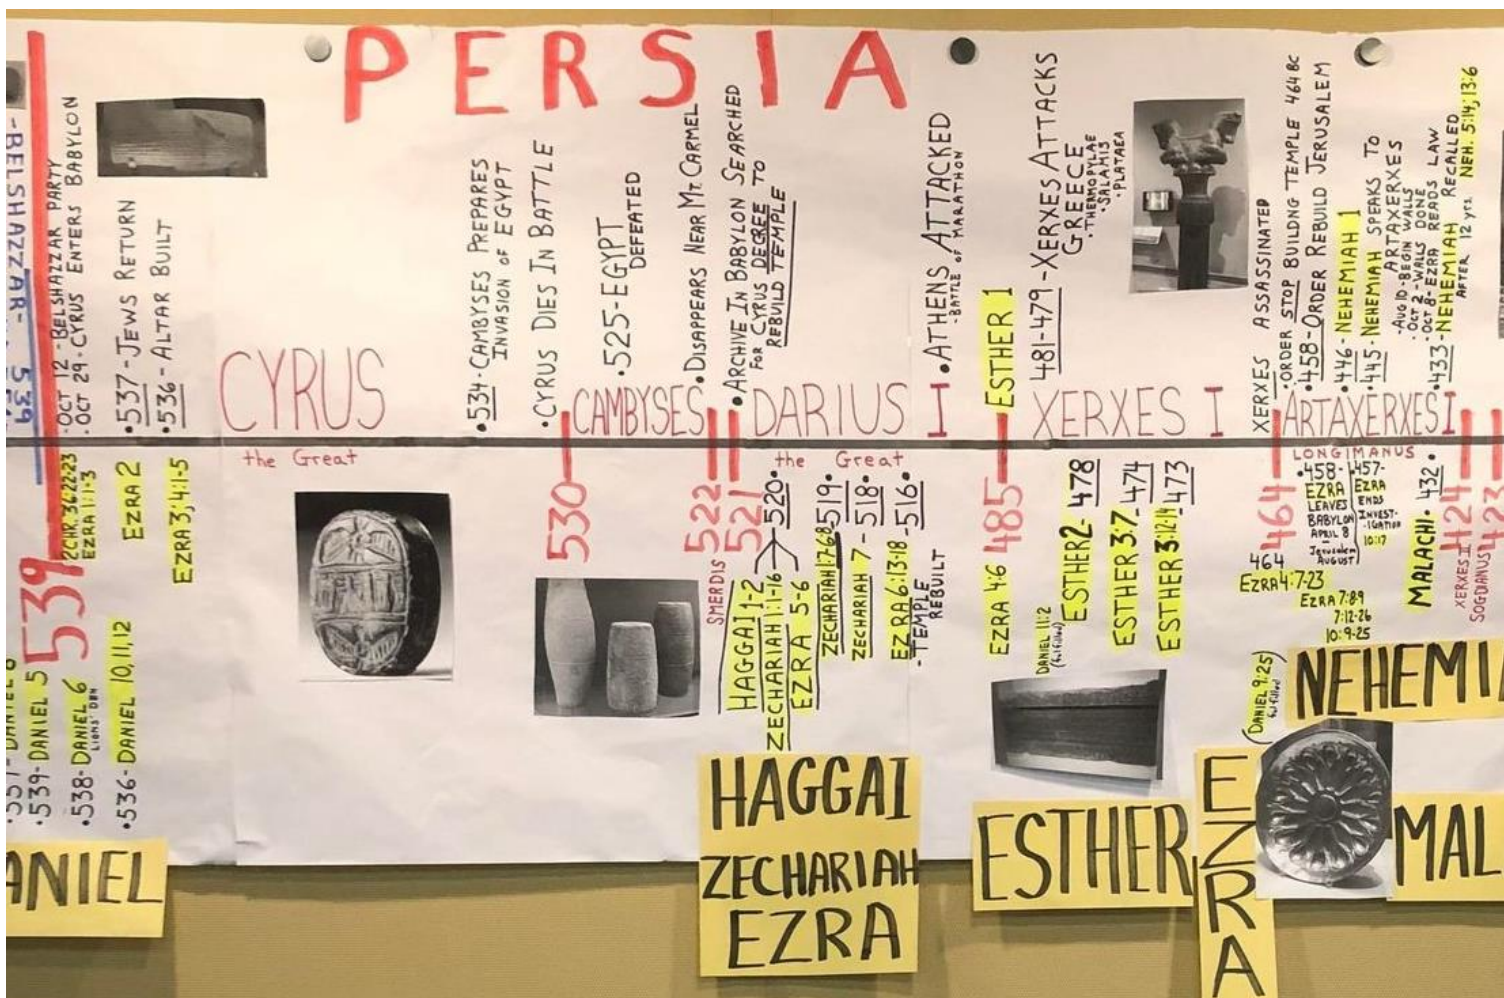 PERSIA
-BELSHAZZAR- 539
·OCT 12-BELSHAZZAR PARTY
·OCT 29-CYRUS ENTERS BABYLON
·537-JEWS RETURN
·536-ALTAR BUILT
CYRUS
the Great
·534-CAMBYSES PREPARES
INVASION OF EGYPT
·CYRUS DIES IN BATTLE
CAMBYSES
·525-EGYPT
DEFEATED
·DISAPPEARS NEAR MT. CARMEL
·ARCHIVE IN BABYLON SEARCHED
FOR CYRUS DECREE TO
REBUILD TEMPLE
DARIUS I
the Great
·ATHENS ATTACKED
-BATTLE OF MARATHON
ESTHER 1
481-479-XERXES ATTACKS
GREECE
·THERMOPYLAE
·SALAMIS
·PLATAEA
XERXES I
XERXES ASSASSINATED
·ORDER STOP BUILDNG TEMPLE 464 BC
·458-ORDER REBUILD JERUSALEM
·446-NEHEMIAH 1
·445-NEHEMIAH SPEAKS TO
ARTAXERXES
-AUG 10-BEGIN WALLS
·OCT 2-WALLS DONE
·OCT 8-EZRA READS LAW
·433-NEHEMIAH RECALLED
AFTER 12 yrs. NEH. 5:14; 13:6
ARTAXERXES I
LONGIMANUS
539
2CHR. 36:22-23
EZRA 1:1-3
EZRA 2
EZRA 3; 4:1-5
·539-DANIEL 5
·538-DANIEL 6
LIONS' DEN
·536-DANIEL 10,11,12
530
522
SMERDIS
521
520·
HAGGAI 1-2
ZECHARIAH 1:1-16
EZRA 5-6
519·
ZECHARIAH 1:7-6:8
518·
ZECHARIAH 7
516·
EZRA 6:13-18
-TEMPLE
REBUILT
485
EZRA 4:6
DANIEL 11:2
(fulfilled)
478
ESTHER 2-
474
ESTHER 3:7-
473
ESTHER 3:12-14
464
464
EZRA 4:7-23
·458-
EZRA
LEAVES
BABYLON
APRIL 8
Jerusalem
AUGUST
457-
EZRA
ENDS
INVEST-
IGATION
10:17
EZRA 7:8,9
7:12-26
10:9-25
432·
MALACHI·
424
XERXES II
423
SOGDIANUS
(DANIEL 9:25
fulfilled)
ANIEL
HAGGAI
ZECHARIAH
EZRA
ESTHER
EZRA
NEHEMI
MAL